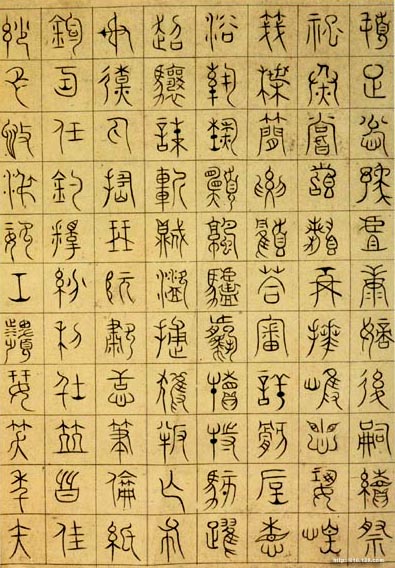 頓足悅豫且康嫡後嗣續祭
祀烝嘗稽顙再拜悚懼恐惶
牋牒簡要顧答審詳骸垢想
浴執熱願涼驢騾犢特駭躍
超驤誅斬賊盜捕獲叛亡布
射僚丸嵇琴阮嘯恬筆倫紙
鈞巧任釣釋紛利俗並皆佳
妙毛施淑姿工顰妍笑年矢